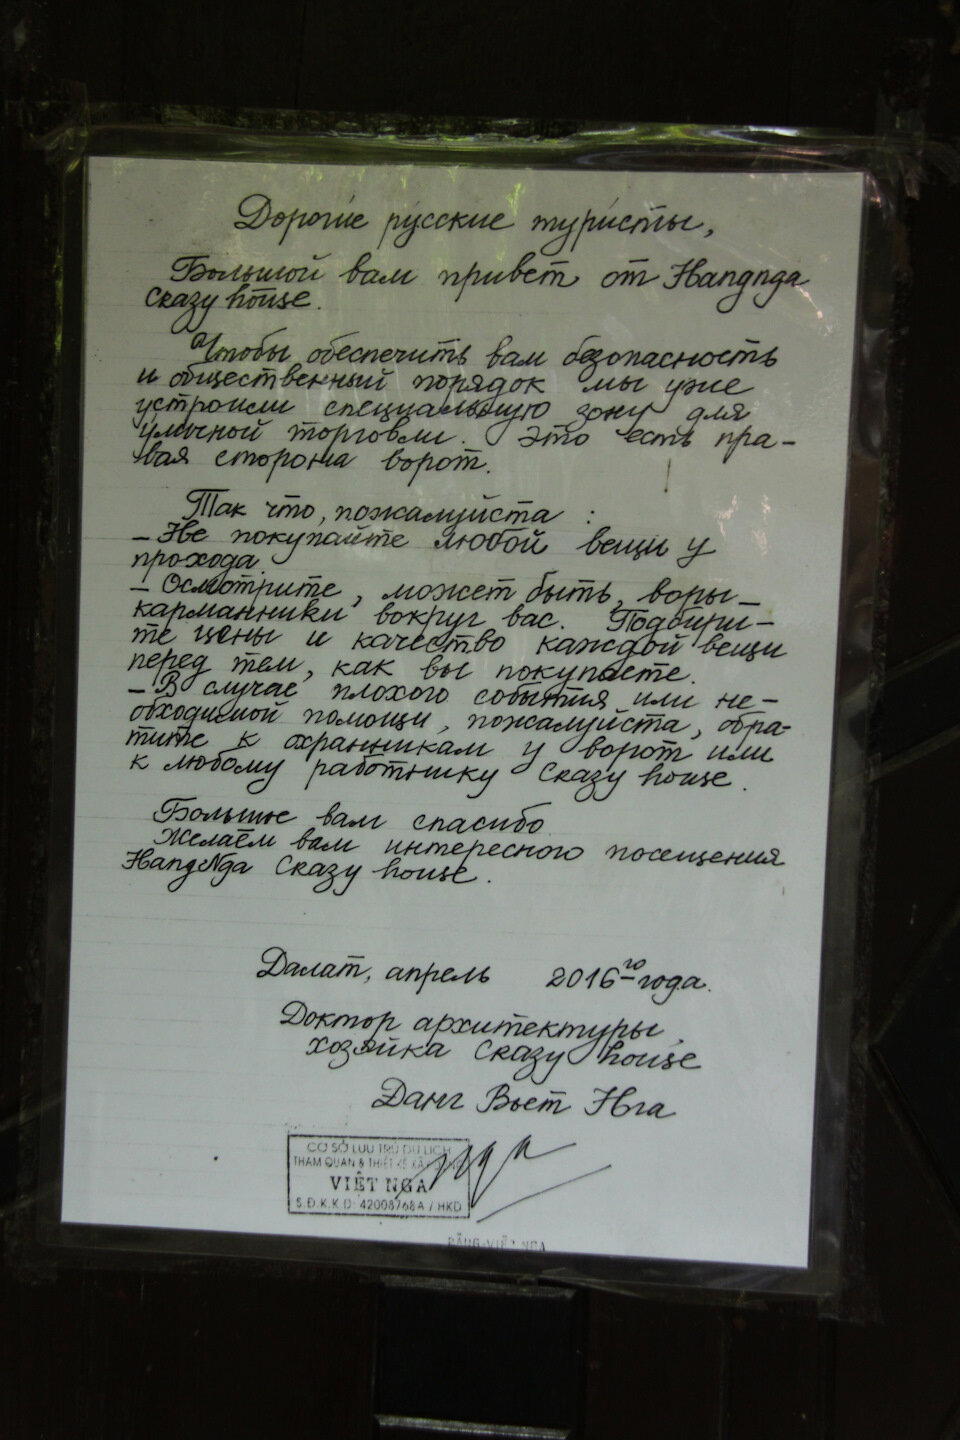 Дорогие русские туристы,
Большой вам привет от Hangnga
Crazy house.
Чтобы обеспечить вам безопасность
и общественный порядок мы уже
устроили специальную зону для
уличной торговли. Это есть пра-
вая сторона ворот.
Так что, пожалуйста :
- Не покупайте любой вещи у
прохода.
- Осмотрите, может быть, воры-
карманники вокруг вас. Подбири-
те цены и качество каждой вещи
перед тем, как вы покупаете.
- В случае плохого события или не-
обходимой помощи, пожалуйста, обра-
тите к охранникам у ворот или
к любому работнику Crazy house.
Большое вам спасибо
Желаем вам интересного посещения
HangNga Crazy house.
Далат, апрель 2016го года.
Доктор архитектуры,
хозяйка Crazy house
Данг Вьет Нга
CƠ SỞ LƯU TRÚ DU LỊCH
THAM QUAN & THIẾT KẾ XÂY DỰNG
VIỆT NGA
S.Đ.K.K.D: 42008768A / HKD
ĐẶNG VIỆT NGA